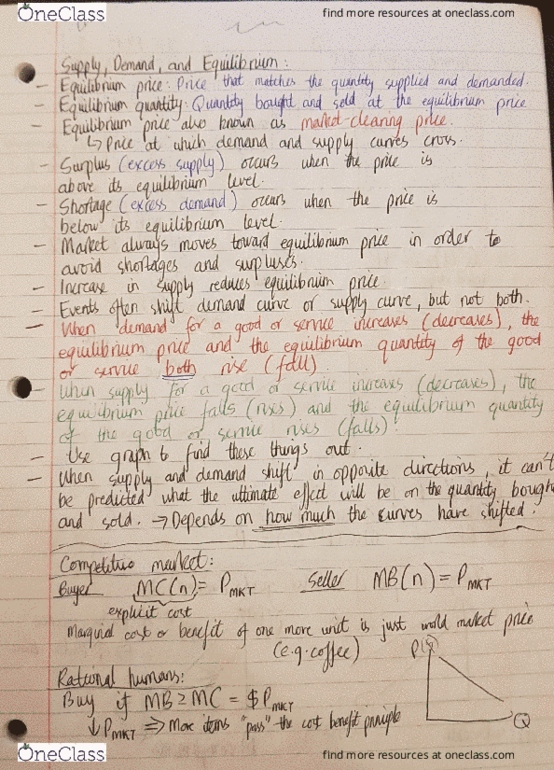 OneClass
find more resources at oneclass.com
Supply, Demand, and Equilibrium:
- Equilibrium price: Price that matches the quantity supplied and demanded.
- Equilibrium quantity: Quantity bought and sold at the equilibrium price
- Equilibrium price also known as market-clearing price.
↳ Price at which demand and supply curves cross.
- Surplus (excess supply) occurs when the price is
above its equilibrium level.
- Shortage (excess demand) occurs when the price is
below its equilibrium level.
- Market always moves toward equilibrium price in order to
avoid shortages and surpluses.
- Increase in supply reduces equilibrium price.
- Events often shift demand curve or supply curve, but not both.
- When demand for a good or service increases (decreases), the
equilibrium price and the equilibrium quantity of the good
or service both rise (fall).
- When supply for a good or service increases (decreases), the
equilibrium price falls (rises) and the equilibrium quantity
of the good or service rises (falls).
- Use graph to find these things out.
- When supply and demand shift in opposite directions, it can't
be predicted what the ultimate effect will be on the quantity bough
and sold. → Depends on how much the curves have shifted.
Competitive market:
Buyer MC(n) = P MKT Seller MB(n) = P MKT
explicit cost
Marginal cost or benefit of one more unit is just world market price
(e.g. coffee)
Rational humans:
Buy if MB ≥ MC = $P MKT
↓P MKT ⇒ More items "pass" the cost benefit principle
Q
OneClass
find more resources at oneclass.com